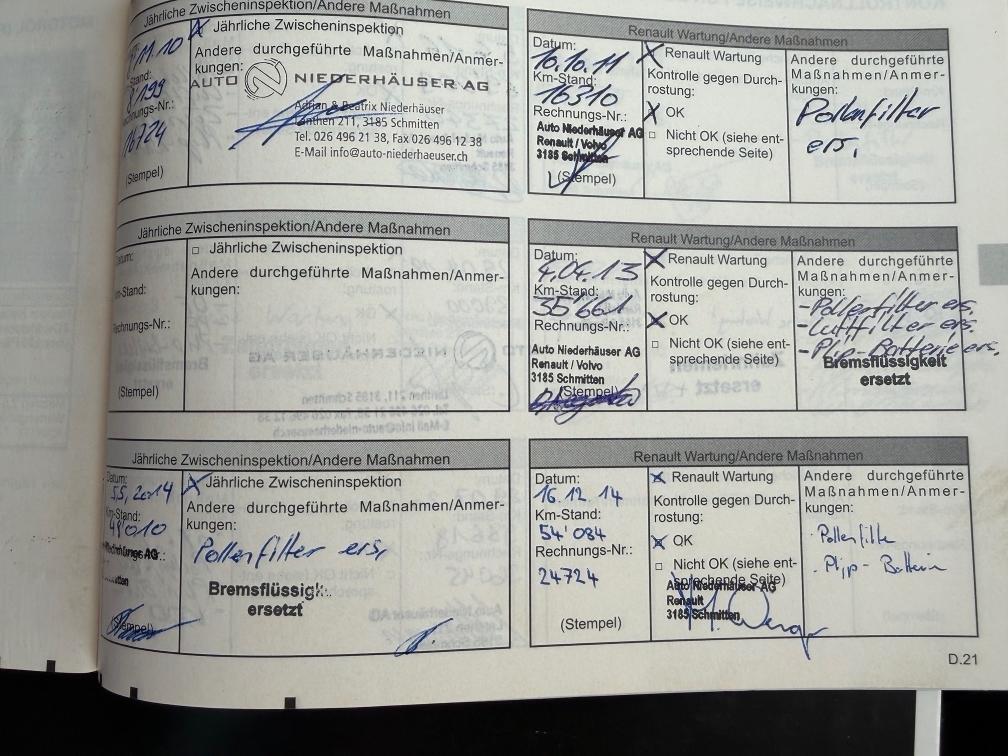 Jährliche Zwischeninspektion/Andere Maßnahmen
11.10
Stand:
8'199
chnungs-Nr.:
16724
(Stempel)
X Jährliche Zwischeninspektion
Andere durchgeführte Maßnahmen/Anmer-
kungen:
AUTO NIEDERHÄUSER AG
Adrian & Beatrix Niederhäuser
Lanthen 211, 3185 Schmitten
Tel. 026 496 21 38, Fax 026 496 12 38
E-Mail info@auto-niederhaeuser.ch
Renault Wartung/Andere Maßnahmen
Datum:
10.10.11
Km-Stand:
16310
Rechnungs-Nr.:
Auto Niederhäuser AG
Renault / Volvo
3185 Schmitten
(Stempel)
X Renault Wartung
Kontrolle gegen Durch-
rostung:
X OK
□ Nicht OK (siehe ent-
sprechende Seite)
Andere durchgeführte
Maßnahmen/Anmer-
kungen:
Pollenfilter
ers.
Jährliche Zwischeninspektion/Andere Maßnahmen
Datum:
Km-Stand:
Rechnungs-Nr.:
(Stempel)
□ Jährliche Zwischeninspektion
Andere durchgeführte Maßnahmen/Anmer-
kungen:
Renault Wartung/Andere Maßnahmen
Datum:
4.04.13
Km-Stand:
35'661
Rechnungs-Nr.:
Auto Niederhäuser AG
Renault / Volvo
3185 Schmitten
(Stempel)
X Renault Wartung
Kontrolle gegen Durch-
rostung:
X OK
□ Nicht OK (siehe ent-
sprechende Seite)
Andere durchgeführte
Maßnahmen/Anmer-
kungen:
- Pollenfilter ers.
- Luftfilter ers.
- Plip-Batterie ers,
Bremsflüssigkeit
ersetzt
Jährliche Zwischeninspektion/Andere Maßnahmen
Datum:
5.5.2014
Km-Stand:
49010
(Stempel)
X Jährliche Zwischeninspektion
Andere durchgeführte Maßnahmen/Anmer-
kungen:
Pollenfilter ers,
Bremsflüssigk
ersetzt
Renault Wartung/Andere Maßnahmen
Datum:
16.12.14
Km-Stand:
54'084
Rechnungs-Nr.:
24724
(Stempel)
X Renault Wartung
Kontrolle gegen Durch-
rostung:
X OK
□ Nicht OK (siehe ent-
sprechende Seite)
Auto Niederhäuser AG
Renault
3185 Schmitten
Andere durchgeführte
Maßnahmen/Anmer-
kungen:
· Pollenfilte
· Plip-Batterien
D.21